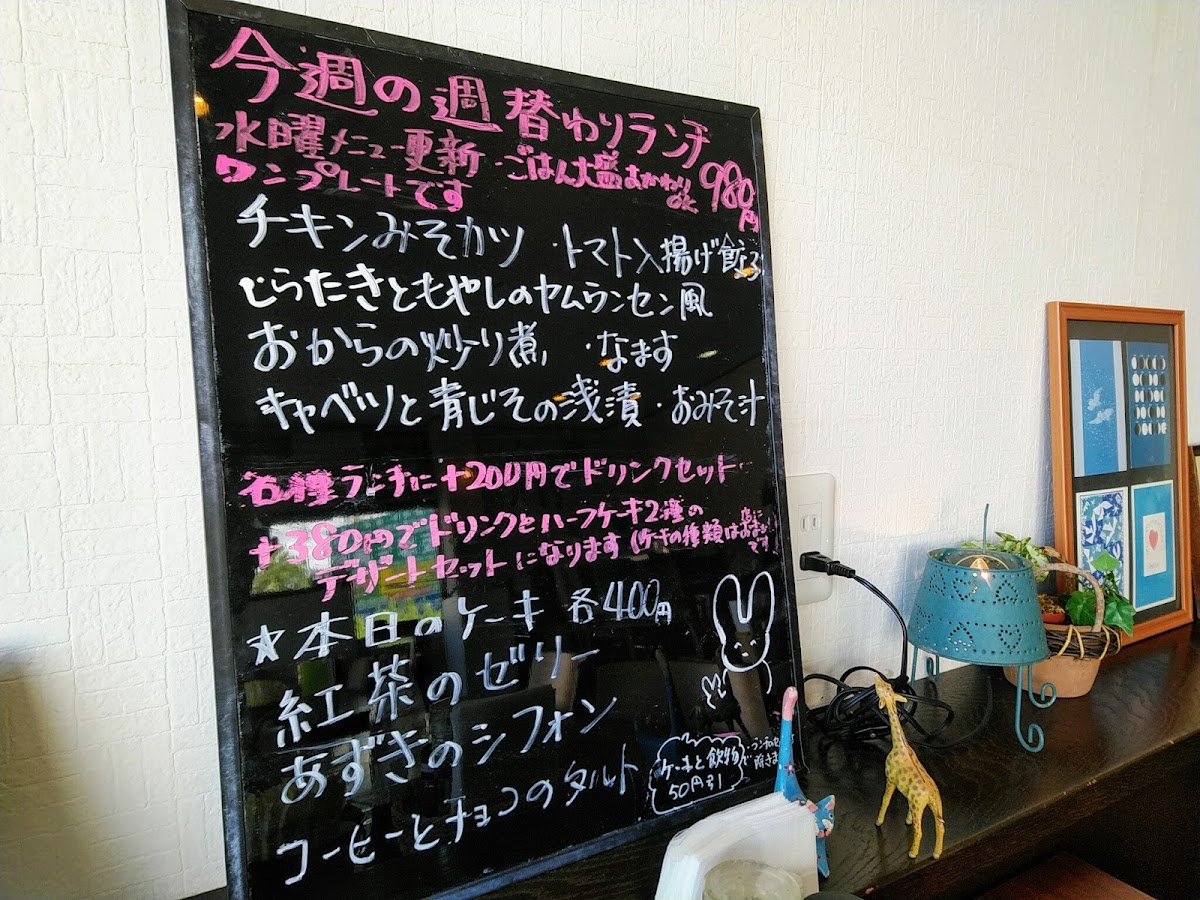 今週の週替わりランチ
水曜メニュー更新・ごはん大盛おかわりOK 980円
ワンプレートです
チキンみそカツ ・トマト入揚げ餃子
じらたきともやしのヤムウンセン風
おからの炒り煮 ・なます
キャベツと青じその浅漬・おみそ汁
各種ランチに+200円でドリンクセット
+380円でドリンクとハーフケーキ2種の
デザートセットになります(ケーキの種類は店におまかせです
★本日のケーキ 各400円
紅茶のゼリー
あずきのシフォン
コーヒーとチョコのタルト
ケーキと飲物で
50円引